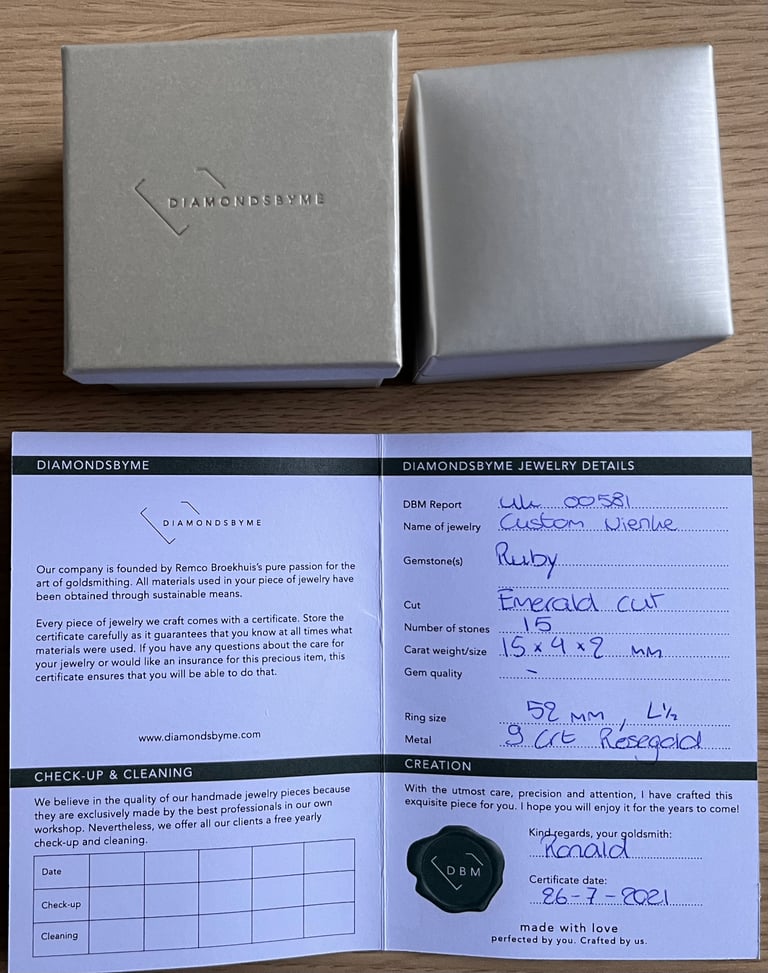 DIAMONDSBYME
DIAMONDSBYME
DIAMONDSBYME
Our company is founded by Remco Broekhuis's pure passion for the
art of goldsmithing. All materials used in your piece of jewelry have
been obtained through sustainable means.
Every piece of jewelry we craft comes with a certificate. Store the
certificate carefully as it guarantees that you know at all times what
materials were used. If you have any questions about the care for
your jewelry or would like an insurance for this precious item, this
certificate ensures that you will be able to do that.
www.diamondsbyme.com
CHECK-UP & CLEANING
We believe in the quality of our handmade jewelry pieces because
they are exclusively made by the best professionals in our own
workshop. Nevertheless, we offer all our clients a free yearly
check-up and cleaning.
Date
Check-up
Cleaning
DIAMONDSBYME JEWELRY DETAILS
DBM Report 00581
Name of jewelry Custom Nienke
Gemstone(s) Ruby
Cut Emerald cut
Number of stones 15
Carat weight/size 15 x 4 x 2 MM
Gem quality -
Ring size 52 MM, L½
Metal 9 crt Rosegold
CREATION
With the utmost care, precision and attention, I have crafted this
exquisite piece for you. I hope you will enjoy it for the years to come!
DBM
Kind regards, your goldsmith:
Ronald
Certificate date:
26-7-2021
made with love
perfected by you. Crafted by us.